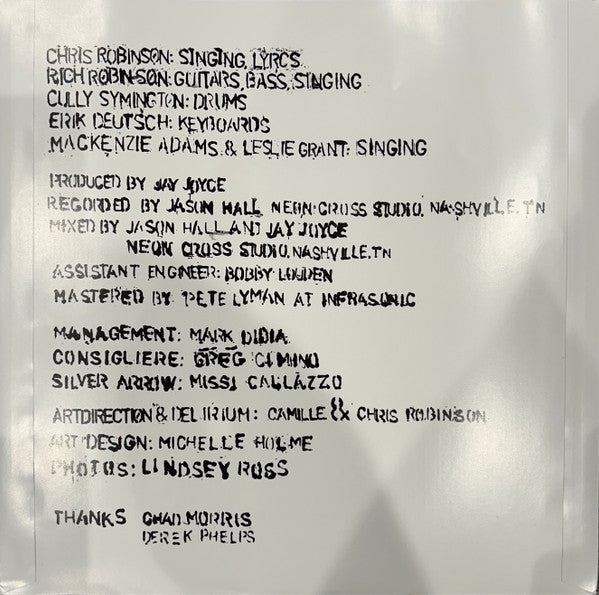 CHRIS ROBINSON: SINGING, LYRCS
RICH ROBINSON: GUITARS, BASS, SINGING
CULLY SYMINGTON: DRUMS
ERIK DEUTSCH: KEYBOARDS
MACKENZIE ADAMS & LESLIE GRANT: SINGING
PRODUCED BY JAY JOYCE
RECORDED BY JASON HALL NEON CROSS STUDIO, NASHVILLE, TN
MIXED BY JASON HALL AND JAY JOYCE
NEON CROSS STUDIO, NASHVILLE, TN
ASSISTANT ENGINEER: BOBBY LOUDEN
MASTERED BY PETE LYMAN AT INFRASONIC
MANAGEMENT: MARK DIDIA
CONSIGLIERE: GREG CIMINO
SILVER ARROW: MISSI CALLAZZO
ART DIRECTION & DELIRIUM: CAMILLE & CHRIS ROBINSON
ART DESIGN: MICHELLE HOLME
PHOTOS: LINDSEY ROSS
THANKS CHAD MORRIS
DEREK PHELPS